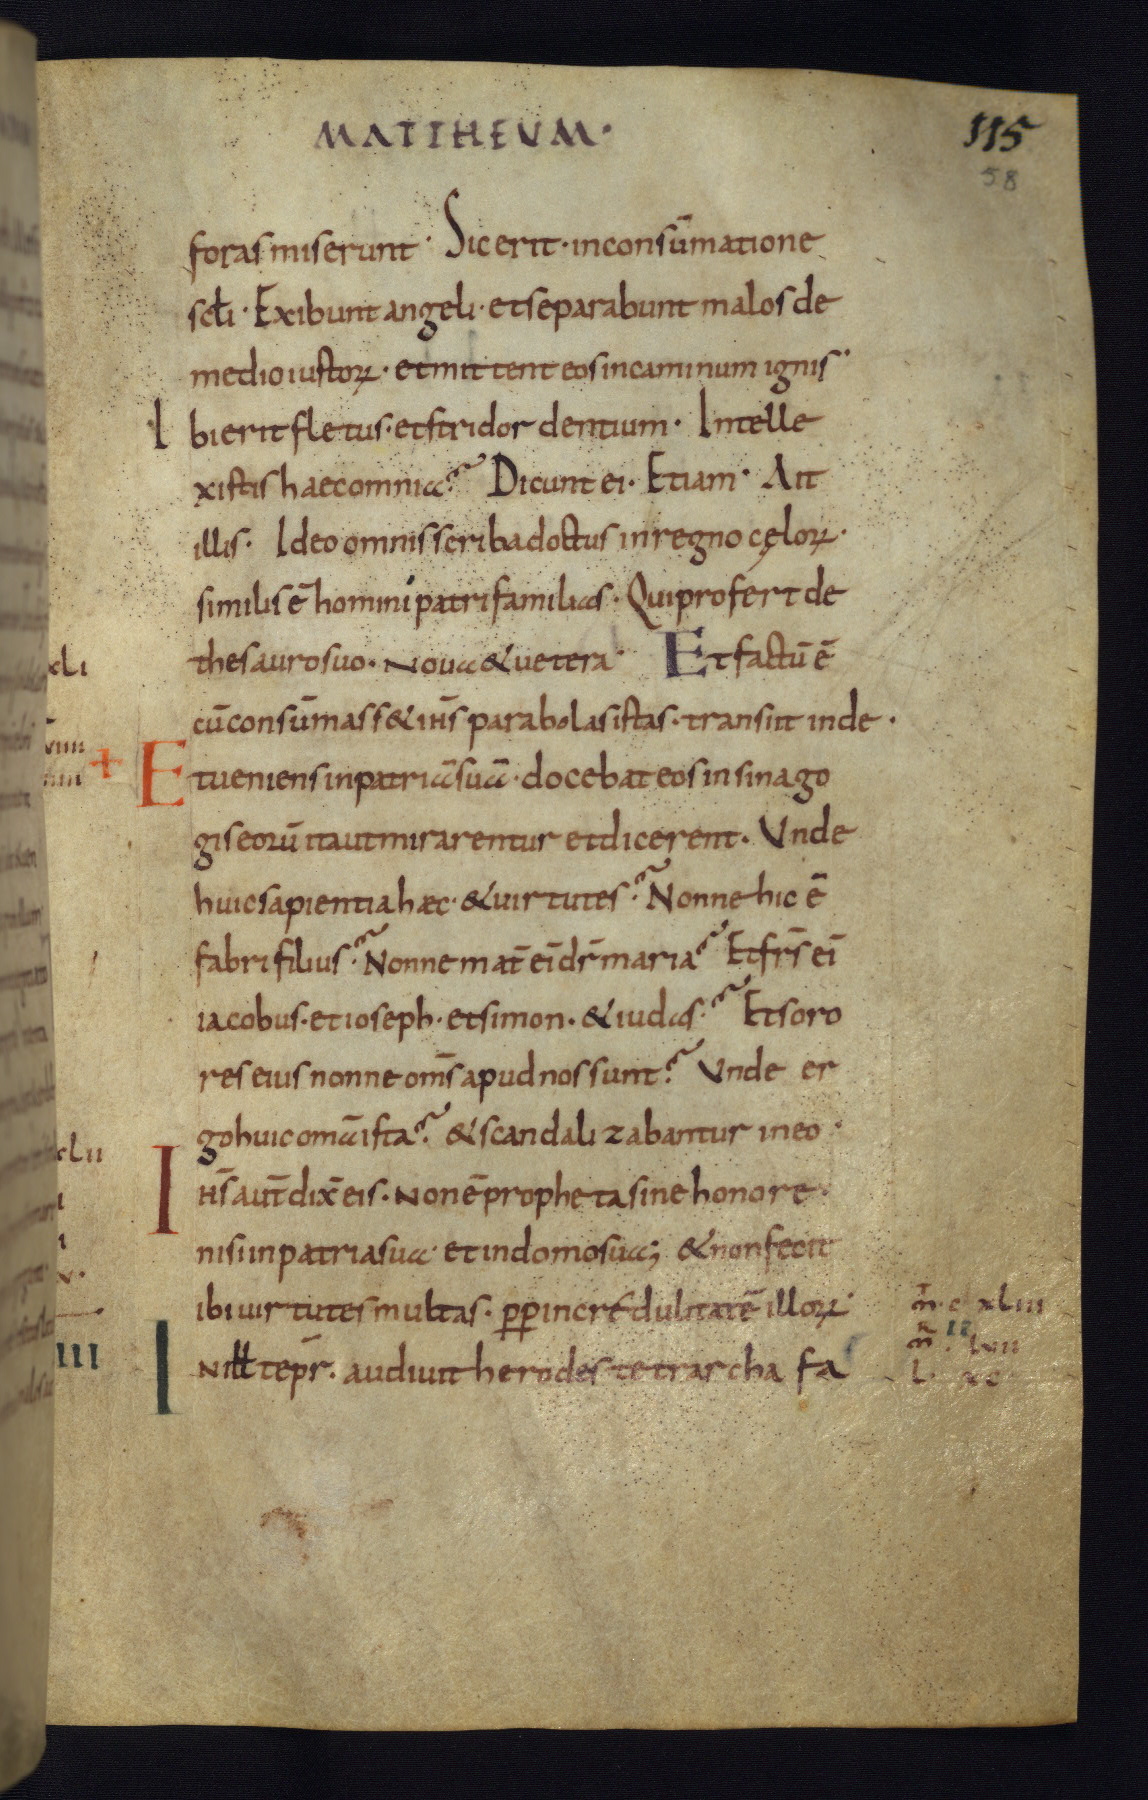 MATTHEUM·
115
58
foras miserunt· Sic erit· in consūmatione
scłi· Exibunt angeli· et separabunt malos de
medio iustoꝝ· et mittent eos in caminum ignis·
I bi erit fletus· et stridor dentium· Intelle
xistis haec omnia? Dicunt ei· Etiam· Ait
illis· Ideo omnis scriba doctus in regno cęloꝝ·
similis ē homini patri familias· Qui profert de
thesauro suo· Noua & uetera· Et factū ē
xli
cū consūmass& ihs̄ parabolas istas· transiit inde·
Et ueniens in patriā suā· docebat eos in sinago
gis eorū ita ut mirarentur et dicerent· Unde
huic sapientia hæc· & uirtutes? Nonne hic ē
fabri filius? Nonne mat̄ eī dr̄ maria? Et fr̄s eī
iacobus· et ioseph· et simon· & iudas? Et soro
res eius nonne om̄s apud nos sunt? Unde er
go huic omā ista? & scandalizabantur in eo·
Ihs̄ aut̄ dix̄ eis· Non ē propheta sine honore·
nisi in patria sua· et in domo sua; & non fecit
ibi uirtutes multas· ꝓꝑ incredulitatē illoꝝ·
In iłł tep̄r· audiuit herodes tetrarcha fa
III
m̄· c xliii
R II
m̄· lvii
l· xc